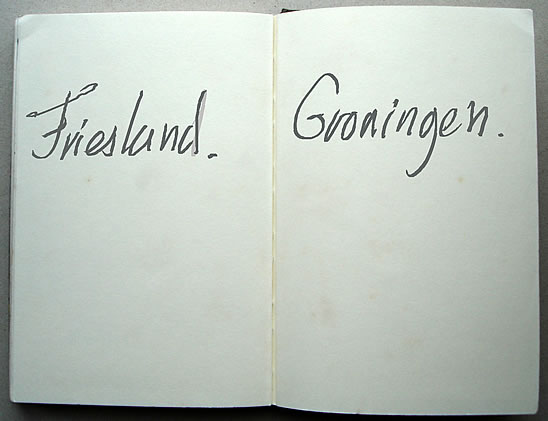 Friesland.
Groningen.